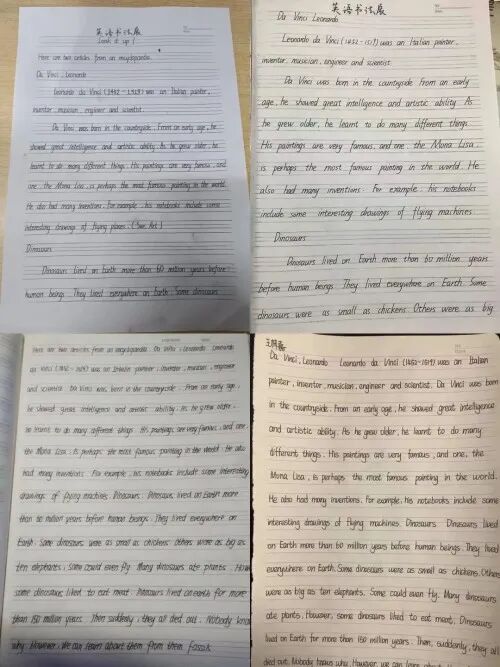 英语书法展
Look it up!
Here are two articles from an encyclopaedia.
Da Vinci, Leonardo
Leonardo da Vinci (1452-1519) was an Italian painter,
inventor, musician, engineer and scientist.
Da Vinci was born in the countryside. From an early age, he
showed great intelligence and artistic ability. As he grew older, he
learnt to do many different things. His paintings are very famous, and
one, the Mona Lisa, is perhaps the most famous painting in the world.
He also had many inventions. For example, his notebooks include some
interesting drawings of flying planes. (See Art)
Dinosaurs
Dinosaurs lived on Earth more than 60 million years before
human beings. They lived everywhere on Earth. Some dinosaurs
英语书法展
Da Vinci Leonardo
Leonardo da Vinci (1452-1519) was an Italian painter,
inventor, musician, engineer and scientist.
Da Vinci was born in the countryside from an early
age, he showed great intelligence and artistic ability. As
he grew older, he learnt to do many different things.
His paintings are very famous, and one the Mona Lisa,
is perhaps the most famous painting in the world. He
also had many inventions. For example, his notebooks
include some interesting drawings of flying machines.
Dinosaurs
Dinosaurs lived on Earth more than 60 million years
before human beings They lived everywhere on Earth Some
dinosaurs were as small as chickens. Others were as big
Here are two articles from an encyclopaedia. Da Vinci, Leonardo Leonardo
da Vinci (1452-1519) was an Italian painter, inventor, musician, engineer
and scientist Da Vinci was born in the countryside. From an early age,
he showed great intelligence and artistic ability. As he grew older,
he learnt to do many different things. His paintings are very famous, and one
the Mona Lisa, is perhaps the most famous painting in the world. He also
had many inventions. For example, his notebooks include some interesting
drawings of flying machines. Dinosaurs Dinosaurs lived on Earth more
than 60 million years before human beings. They lived everywhere on
Earth. Some dinosaurs were as small as chickens Others were as big as
ten elephants, some could even fly Many dinosaurs ate plants.
some dinosaurs liked to eat meat. Dinosaurs lived on earth for more
than 150 million years. Then suddenly, they all died out. Nobody know
why. However, We can learn about them from them fossils
Da Vinci, Leonardo Leonardo da Vinci (1452-1519) was an Italian
painter, inventor, musician, engineer and scientist. Da Vinci was born
in the countryside. From an early age, he showed great intelligence
and artistic ability. As he grew older, he learnt to do many
different things. His paintings are very famous, and one, the
Mona Lisa, is perhaps the most famous painting in the world.
He also had many inventions. For example, his notebooks include some
interesting drawings of flying machines. Dinosaurs Dinosaurs lived
on Earth more than 60 million years before human beings. They lived
everywhere on Earth. Some dinosaurs were as small as chickens. Others
were as big as ten elephants. Some could even fly. Many dinosaurs
ate plants. However, some dinosaurs liked to eat meat. Dinosaurs
lived on Earth for more than 150 million years. Then, suddenly, they all
died out. Nobody knows why. However, we can learn about